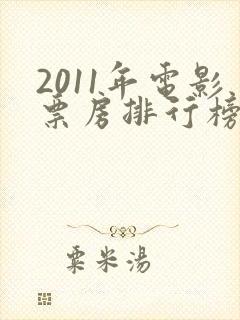 2011年電影
票房排行榜
粟米湯